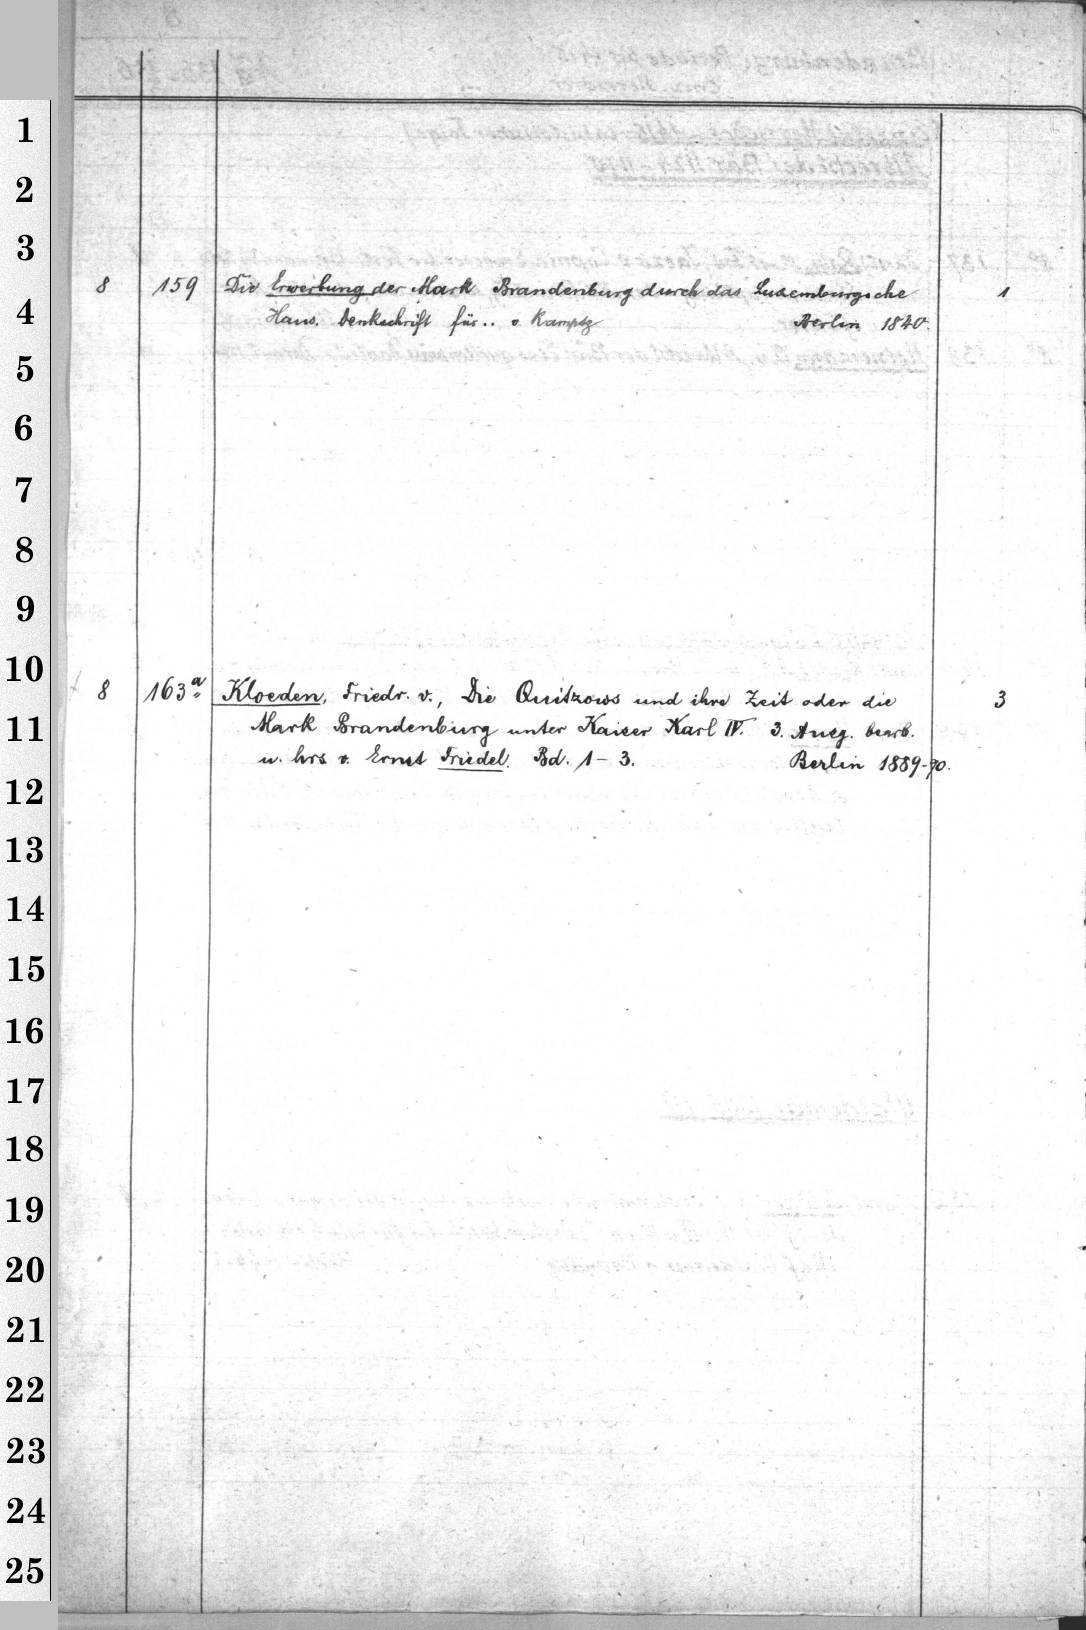 1
2
3
8 159 Die Erwerbung der Mark Brandenburg durch das Luxemburgsche 1
4
Haus. Denkschrift für.. v. Kamptz Berlin 1840.
5
6
7
8
9
10
8 163a Kloeden, Friedr. v., Die Quitzows und ihre Zeit oder die 3
11
Mark Brandenburg unter Kaiser Karl IV. 3. Ausg. bearb.
u. hrs v. Ernst Friedel. Bd. 1-3. Berlin 1889-90.
12
13
14
15
16
17
18
19
20
21
22
23
24
25